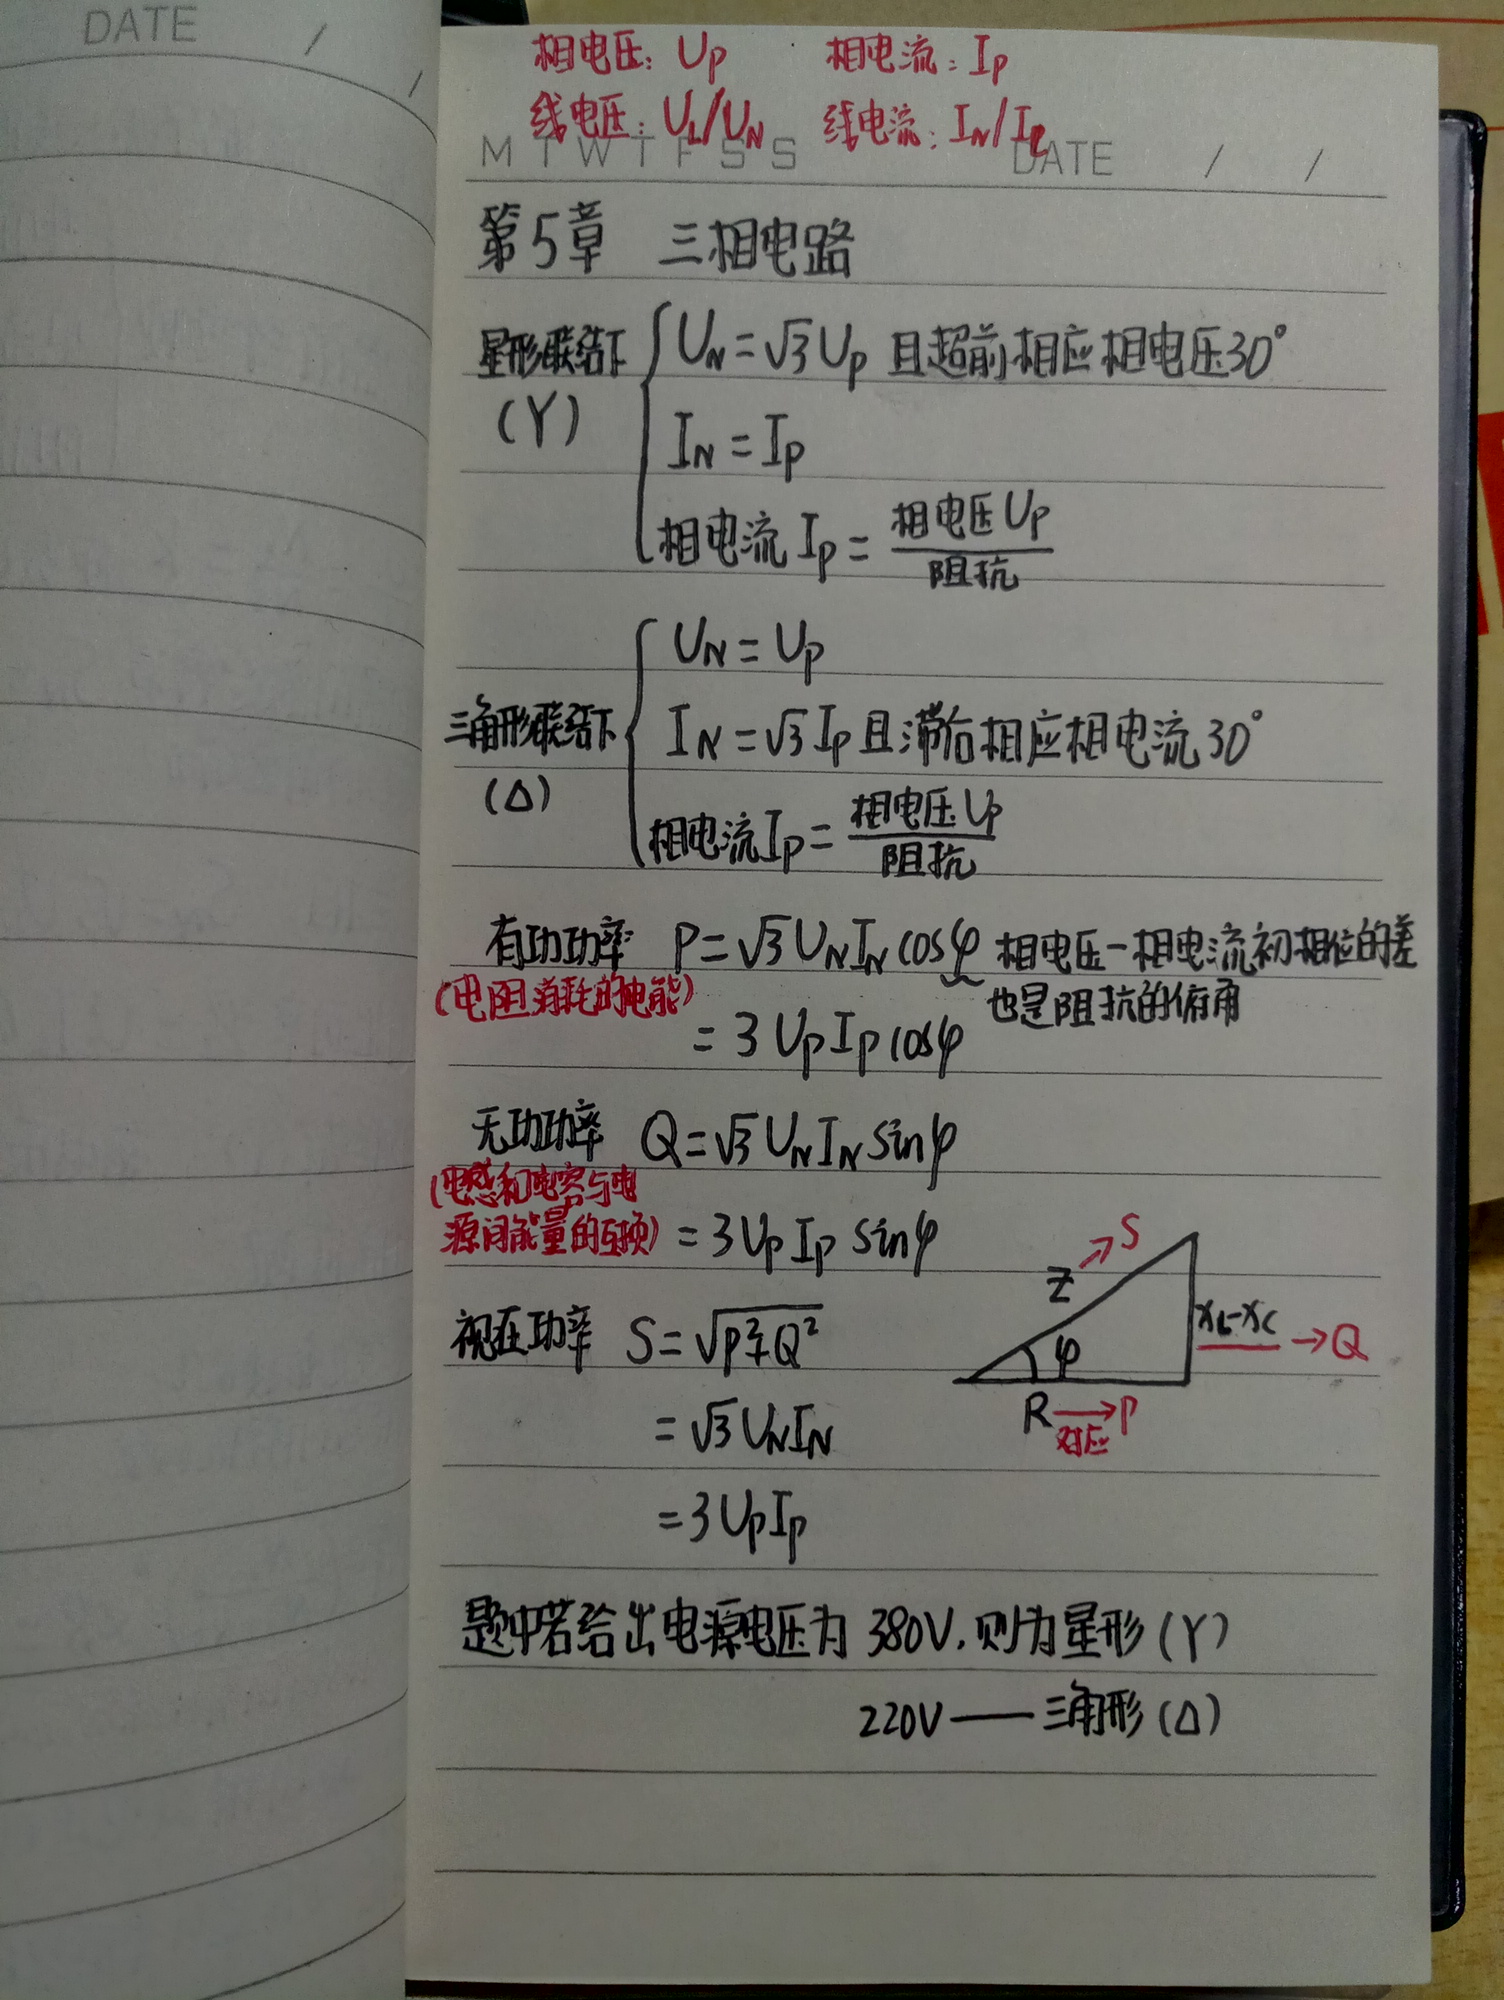 DATE / /
相电压: Up 相电流: Ip
线电压: UL/UN 线电流: IN/Il
M T W T F S S DATE / /
第5章 三相电路
星形联结下 (Y)
UN = √3 Up 且超前相应相电压30°
IN = Ip
相电流 Ip = 相电压Up / 阻抗
三角形联结下 (Δ)
UN = Up
IN = √3 Ip 且滞后相应相电流30°
相电流 Ip = 相电压Up / 阻抗
有功功率 P = √3 UN IN cosφ 相电压-相电流初相位的差
(电阻消耗的电能) 也是阻抗的俯角
= 3 Up Ip cosφ
无功功率 Q = √3 UN IN sinφ
(电感和电容与电
源间能量的互换) = 3 Up Ip sinφ
Z → S
视在功率 S = √P²+Q²
φ XL-XC → Q
R → P
对应
= √3 UN IN
= 3 Up Ip
题中若给出电源电压为380V,则为星形(Y)
220V —— 三角形(Δ)